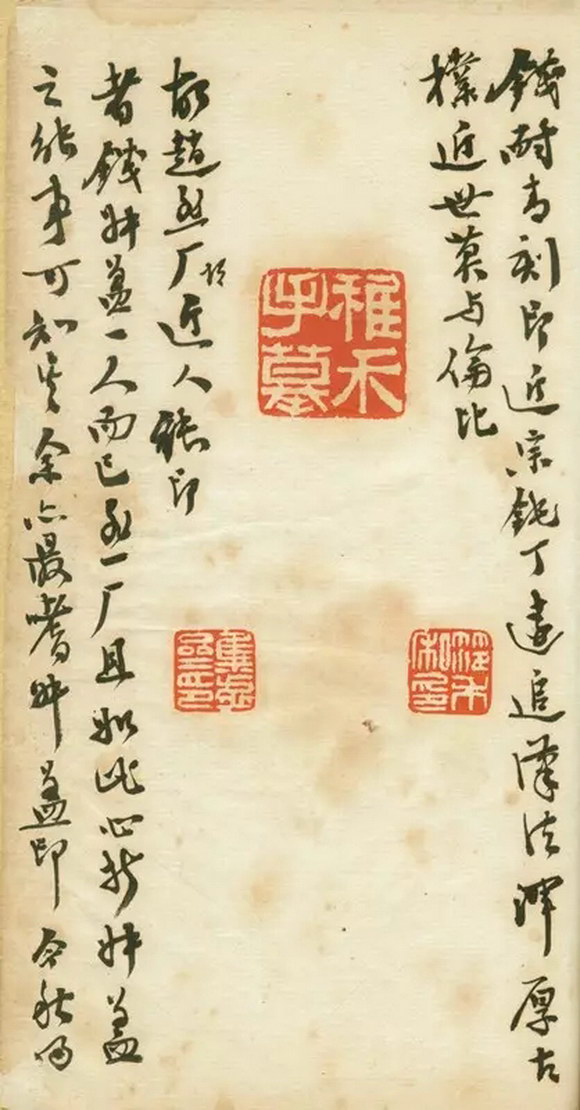 錢耐青刻印近宗鈍丁遠追漢法渾厚古
樸近世莫与倫比
稚禾手摹
故趙悲厂於近人稱印
者錢叔蓋一人而已悲厂且如此心折叔蓋
之能事可知矣余亦最嗜叔蓋印今秋